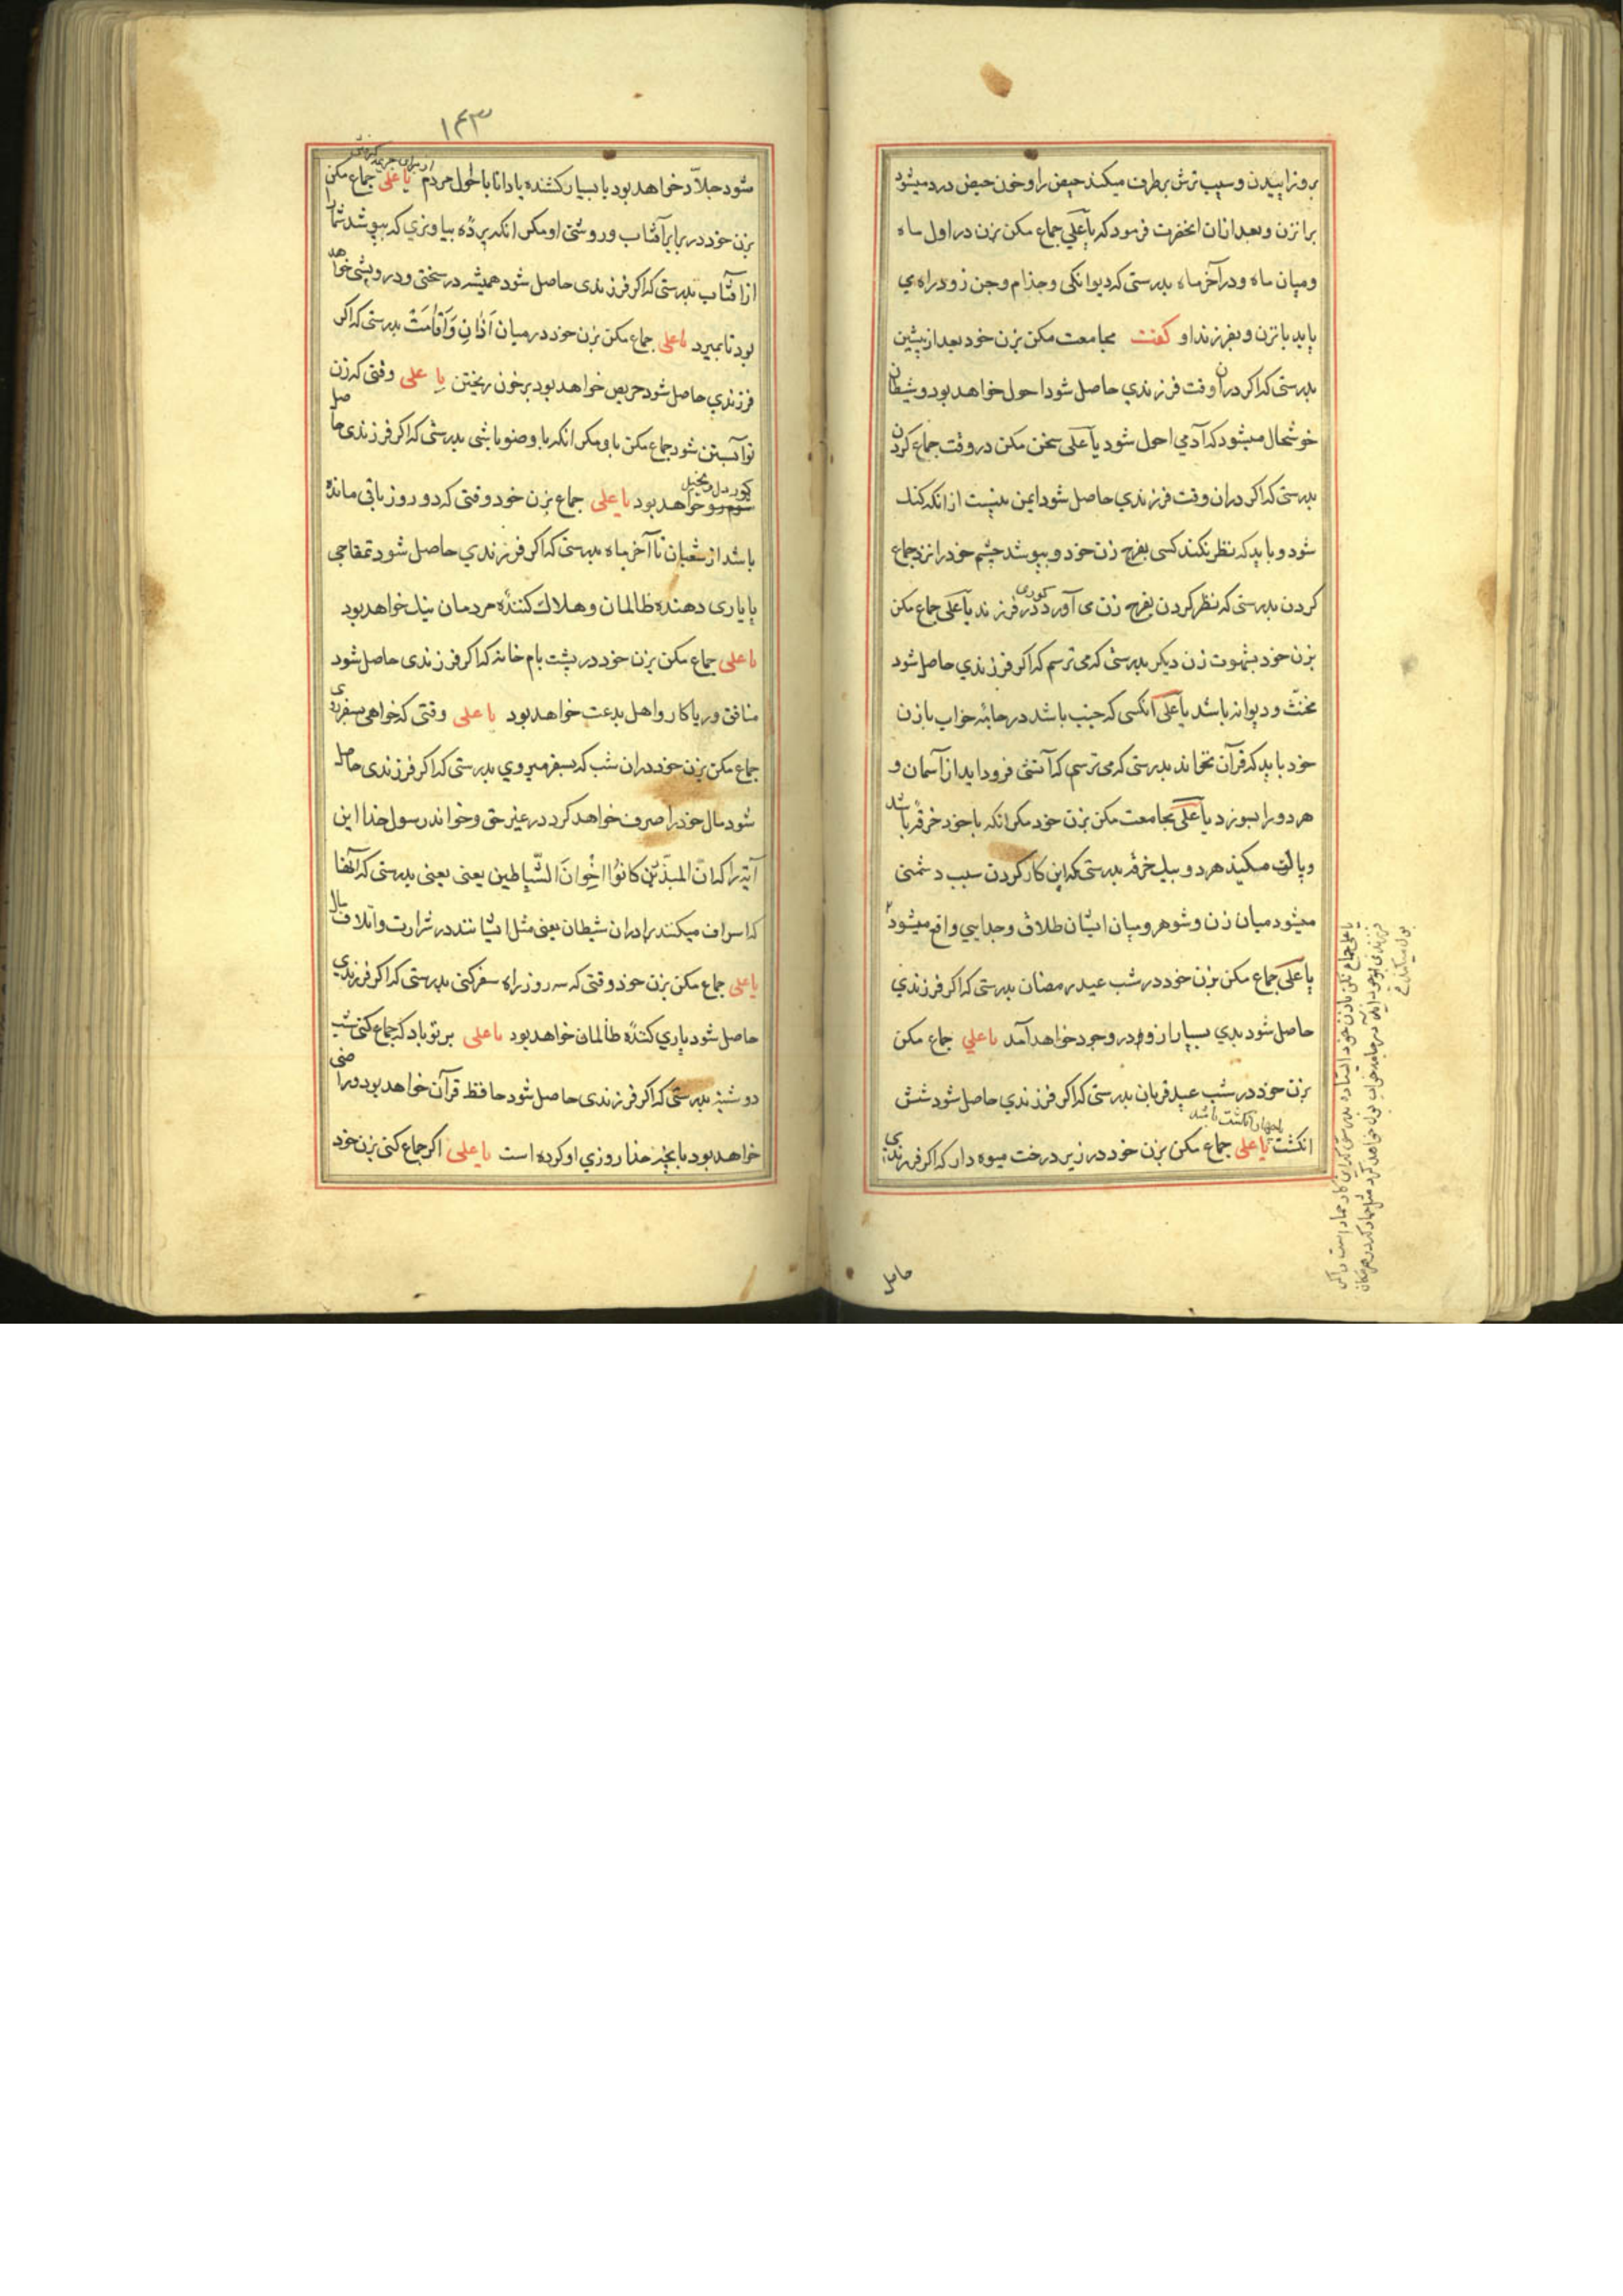 بروزاییدن و سیب ترش برطرف میکند حیض را و خون حیض درد میشود
برانزن و بعد ازان انحضرت فرمود که یا علی جماع مکن بزن در اول ماه
و میان ماه و در آخر ماه بدرستی که دیوانکی و جذام و جن زود راه می
یابد بانزن و بفرزند او کفت مجامعت مکن بزن خود بعد از پیشین
بدرستی که اکر دران وقت فرزندی حاصل شود احول خواهد بود و شیطان
خوشحال میشود که آدمی احول شود یا علی سخن مکن در وقت جماع کردن
بدرستی که اکر دران وقت فرزندی حاصل شود ایمن نیست از انکه کنک
شود و باید که نظر نکند کسی بفرج زن خود و بپوشد چشم خود را نزد جماع
کردن بدرستی که نظر کردن بفرج زن می آورد کوری در فرزند یا علی جماع مکن
بزن خود بشهوت زن دیکر بدرستی که می ترسم که اکر فرزندی حاصل شود
مخنث و دیوانه باشد یا علی آنکسی که جنب باشد در جامه خواب با زن
خود باید که قرآن نخواند بدرستی که می ترسم که آتشی فرود اید از آسمان و
هر دو را بسوزد یا علی مجامعت مکن بزن خود مکر انکه با خود خرقه باشد
و پاک میکنید هر دو بیک خرقه بدرستی که این کار کردن سبب دشمنی
میشود میان زن و شوهر و میان ایشان طلاق و جدایی واقع میشود
یا علی جماع مکن بزن خود در شب عید رمضان بدرستی که اکر فرزندی
حاصل شود بدی بسیار از و در وجود خواهد آمد یا علی جماع مکن
بزن خود در شب عید قربان بدرستی که اکر فرزندی حاصل شود شش
انکشت یا چهار انکشت باشد یا علی جماع مکن بزن خود در زیر درخت میوه دار که اکر فرزندی
یا علی جماع مکن بازن خود ایستاده بدرستی که این کار حمار است و اکر
فرزندی بوجود آید در جامه خواب بول خواهد کرد مثل حمار که در هر مکان
بول میکند
حاصل
۱۴۳
شود جلاّد خواهد بود یا بسیار کشنده یا دانا باحوال مردم یا علی جماع مکن
بزن خود در برابر آفتاب و روشنی او مکر انکه پرده بیاویزی که بپوشد شما را
از افتاب بدرستی که اکر فرزندی حاصل شود همیشه در سختی و درویشی خواهد
بود تا بمیرد یا علی جماع مکن بزن خود در میان اَذان وَ اَقامَتْ بدرستی که اکر
فرزندی حاصل شود حریص خواهد بود بر خون ریختن یا علی وقتی که زن
تو آبستن شود جماع مکن با و مکر انکه با وضو باشی بدرستی که اکر فرزندی حاصل
شود کور دل و بخیل خواهد بود یا علی جماع بزن خود وقتی که دو روز باقی مانده
باشد از شعبان تا آخر ماه بدرستی که اکر فرزندی حاصل شود تمغاجی
یا یاری دهنده ظالمان و هلاک کننده مردمان نیک خواهد بود
یا علی جماع مکن بزن خود در پشت بام خانه که اکر فرزندی حاصل شود
منافق و ریا کار و اهل بدعت خواهد بود یا علی وقتی که خواهی بسفر روی
جماع مکن بزن خود دران شب که بسفر میروی بدرستی که اکر فرزندی حاصل
شود مال خود را صرف خواهد کرد در غیر حق و خواند رسول خدا این
آیة را که انّ المبذّرین کانوُا اخْوانَ الشّیاطین یعنی یعنی بدرستی که آنها
که اسراف میکنند برادران شیطان یعنی مثل ایشانند در شرارت و اتلاف مال
یا علی جماع مکن بزن خود وقتی که سه روز راه سفر کنی بدرستی که اکر فرزندی
حاصل شود یاری کننده ظالمان خواهد بود یا علی بر تو باد که جماع کنی شب
دوشنبه بدرستی که اکر فرزندی حاصل شود حافظ قرآن خواهد بود و راضی
خواهد بود بانچه خدا روزی او کرده است یا علی اکر جماع کنی بزن خود